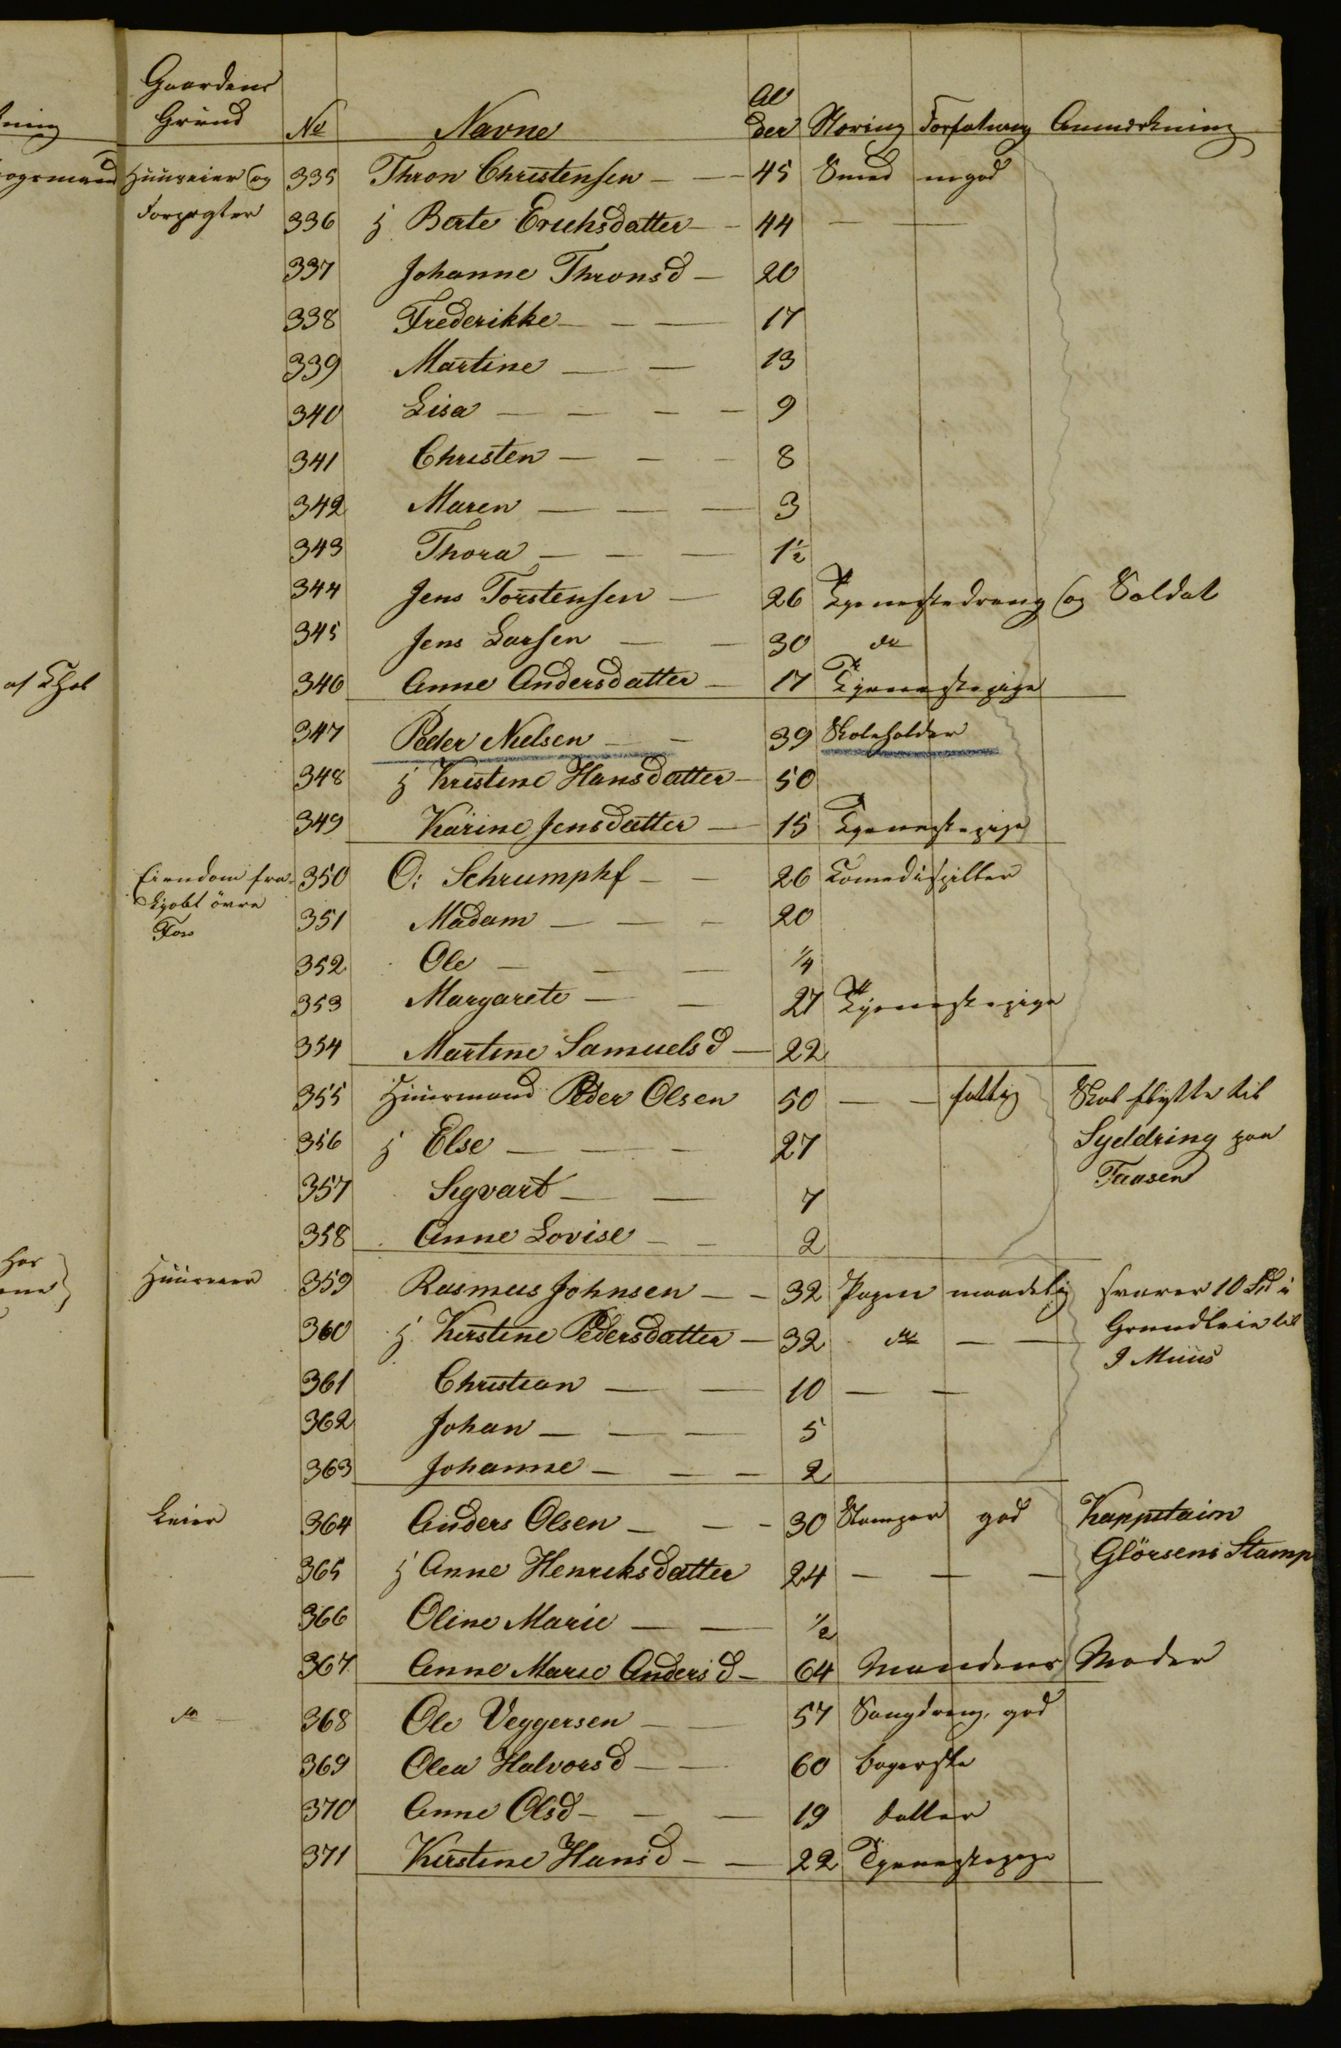 Gaardens
Grund No Navne Al
der Næring Forfatning Anmærkning
Huuseier og 335 Thron Christensen - - 45 Smed megod
Forpagter 336 h Berte Erichsdatter - - 44 - -
337 Johanne Thronsd - 20
338 Frederikke - - - 17
339 Martine - - 13
340 Lisa - - - - 9
341 Christen - - - 8
342 Maren - - - 3
343 Thora - - - 1½
344 Jens Torstensen - 26 Tjenestedreng og Soldat
345 Jens Larsen - - 30 do
346 Anne Andersdatter - 17 Tjenestepige
347 Peder Nielsen - - 39 Skoleholder
348 h Kristine Hansdatter - 50
349 Karine Jensdatter - 15 Tjenestepige
Eiendom fra- 350 O: Schrumphf - - 26 Comedispiller
kjøbt övre 351 Madam - - - 20
Fos
352 Ole - - - ¼
353 Margarete - - 27 Tjenestepige
354 Martine Samuelsd - 22
355 Huusmand Peder Olsen 50 - - fattig Skal flytte til
356 h Else - - - 27 Syddring paa
357 Sigvart - - 7 Faasen
358 Anne Lovise - - 2
Huuseier 359 Rasmus Johnsen - - 32 maadelig svarer 10 Sd i
360 h Kirstine Pedersdatter - 32 do - - Grundleie til
J Muus
361 Christian - - 10 - -
362 Johan - - - 5
363 Johanne - - - 2
Leier 364 Anders Olsen - - - 30 Stamper god Kappitain
365 h Anne Henriksdatter 24 - - - Glörsens Stamp
366 Oline Marie - - ½
367 Anne Marie Andersd - 64 Mandens Moder
do 368 Ole Veggersen - - 57 Saugdreng, god
369 Olea Halvorsd - - 60 bagerske
370 Anne Olsd - - - 19 datter
371 Kirstine Hansd - - 22 Tjenestepige